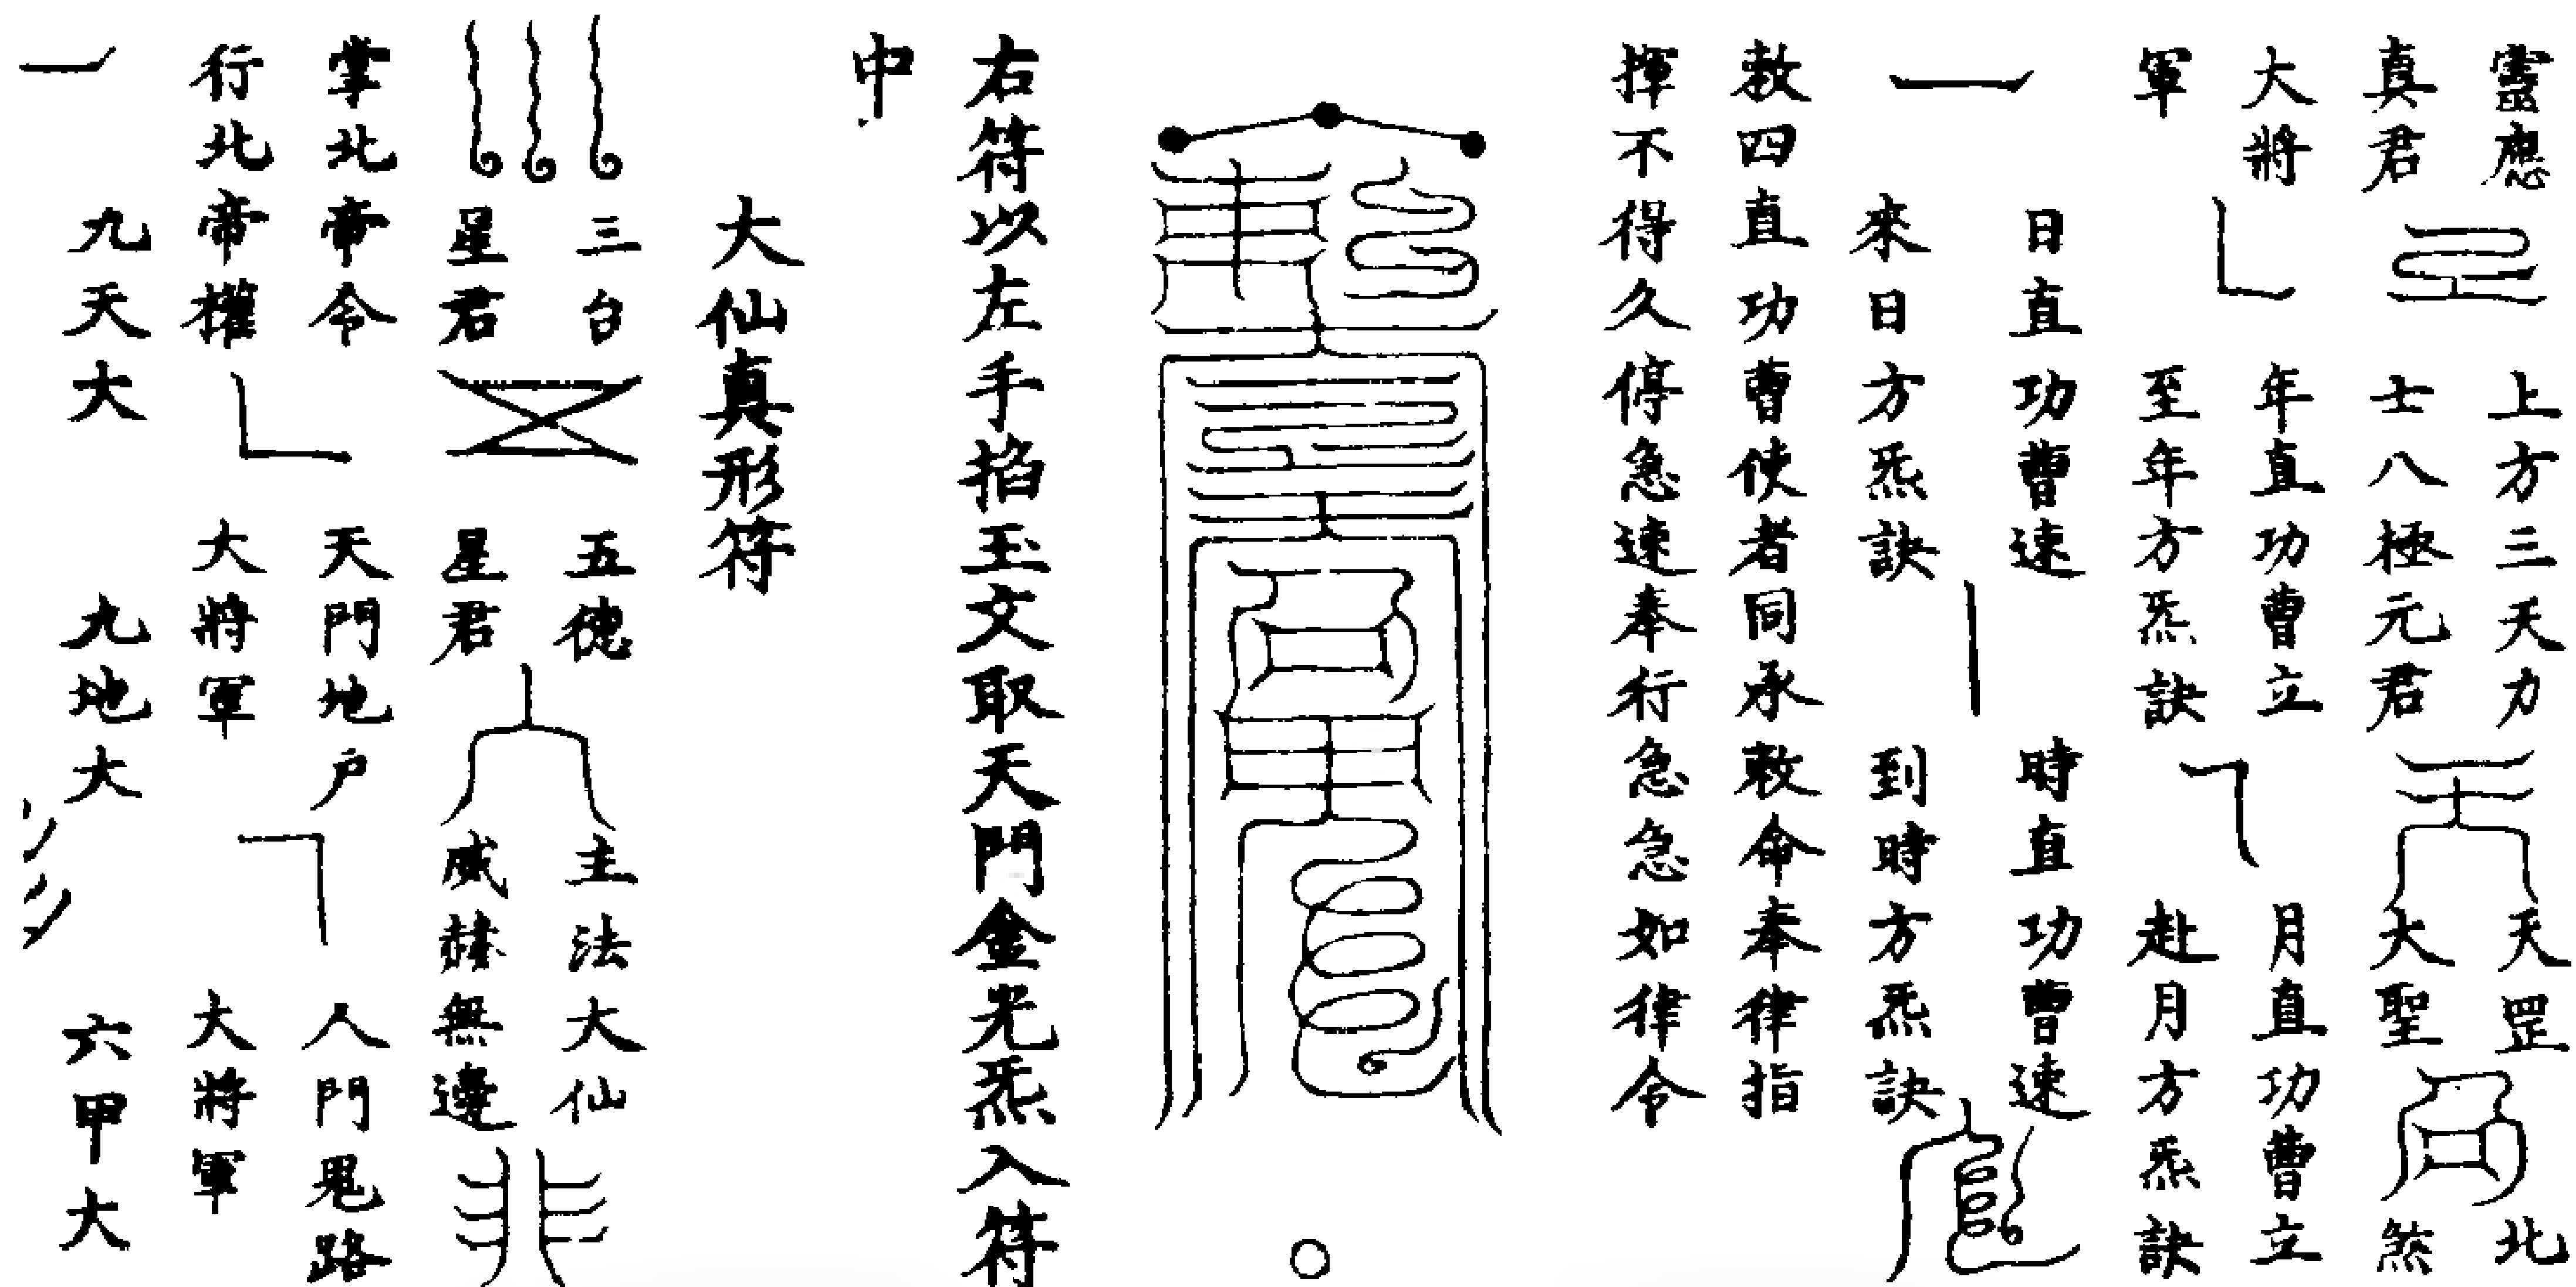 靈應 上方三天力 天罡 北
真君 士八極元君 大聖 煞
大將 年直功曹立 月直功曹立
軍 至年方炁訣 赴月方炁訣
日直功曹速 時直功曹速
來日方炁訣 到時方炁訣
敕四直功曹使者同承敕命奉律指
揮不得久停急速奉行急急如律令
右符以左手掐玉文取天門金光炁入符
中
大仙真形符
三台 五德 主法大仙
星君 星君 威赫無邊
掌北帝令 天門地户 人門鬼路
行北帝權 大將軍 大將軍
九天大 九地大 六甲大